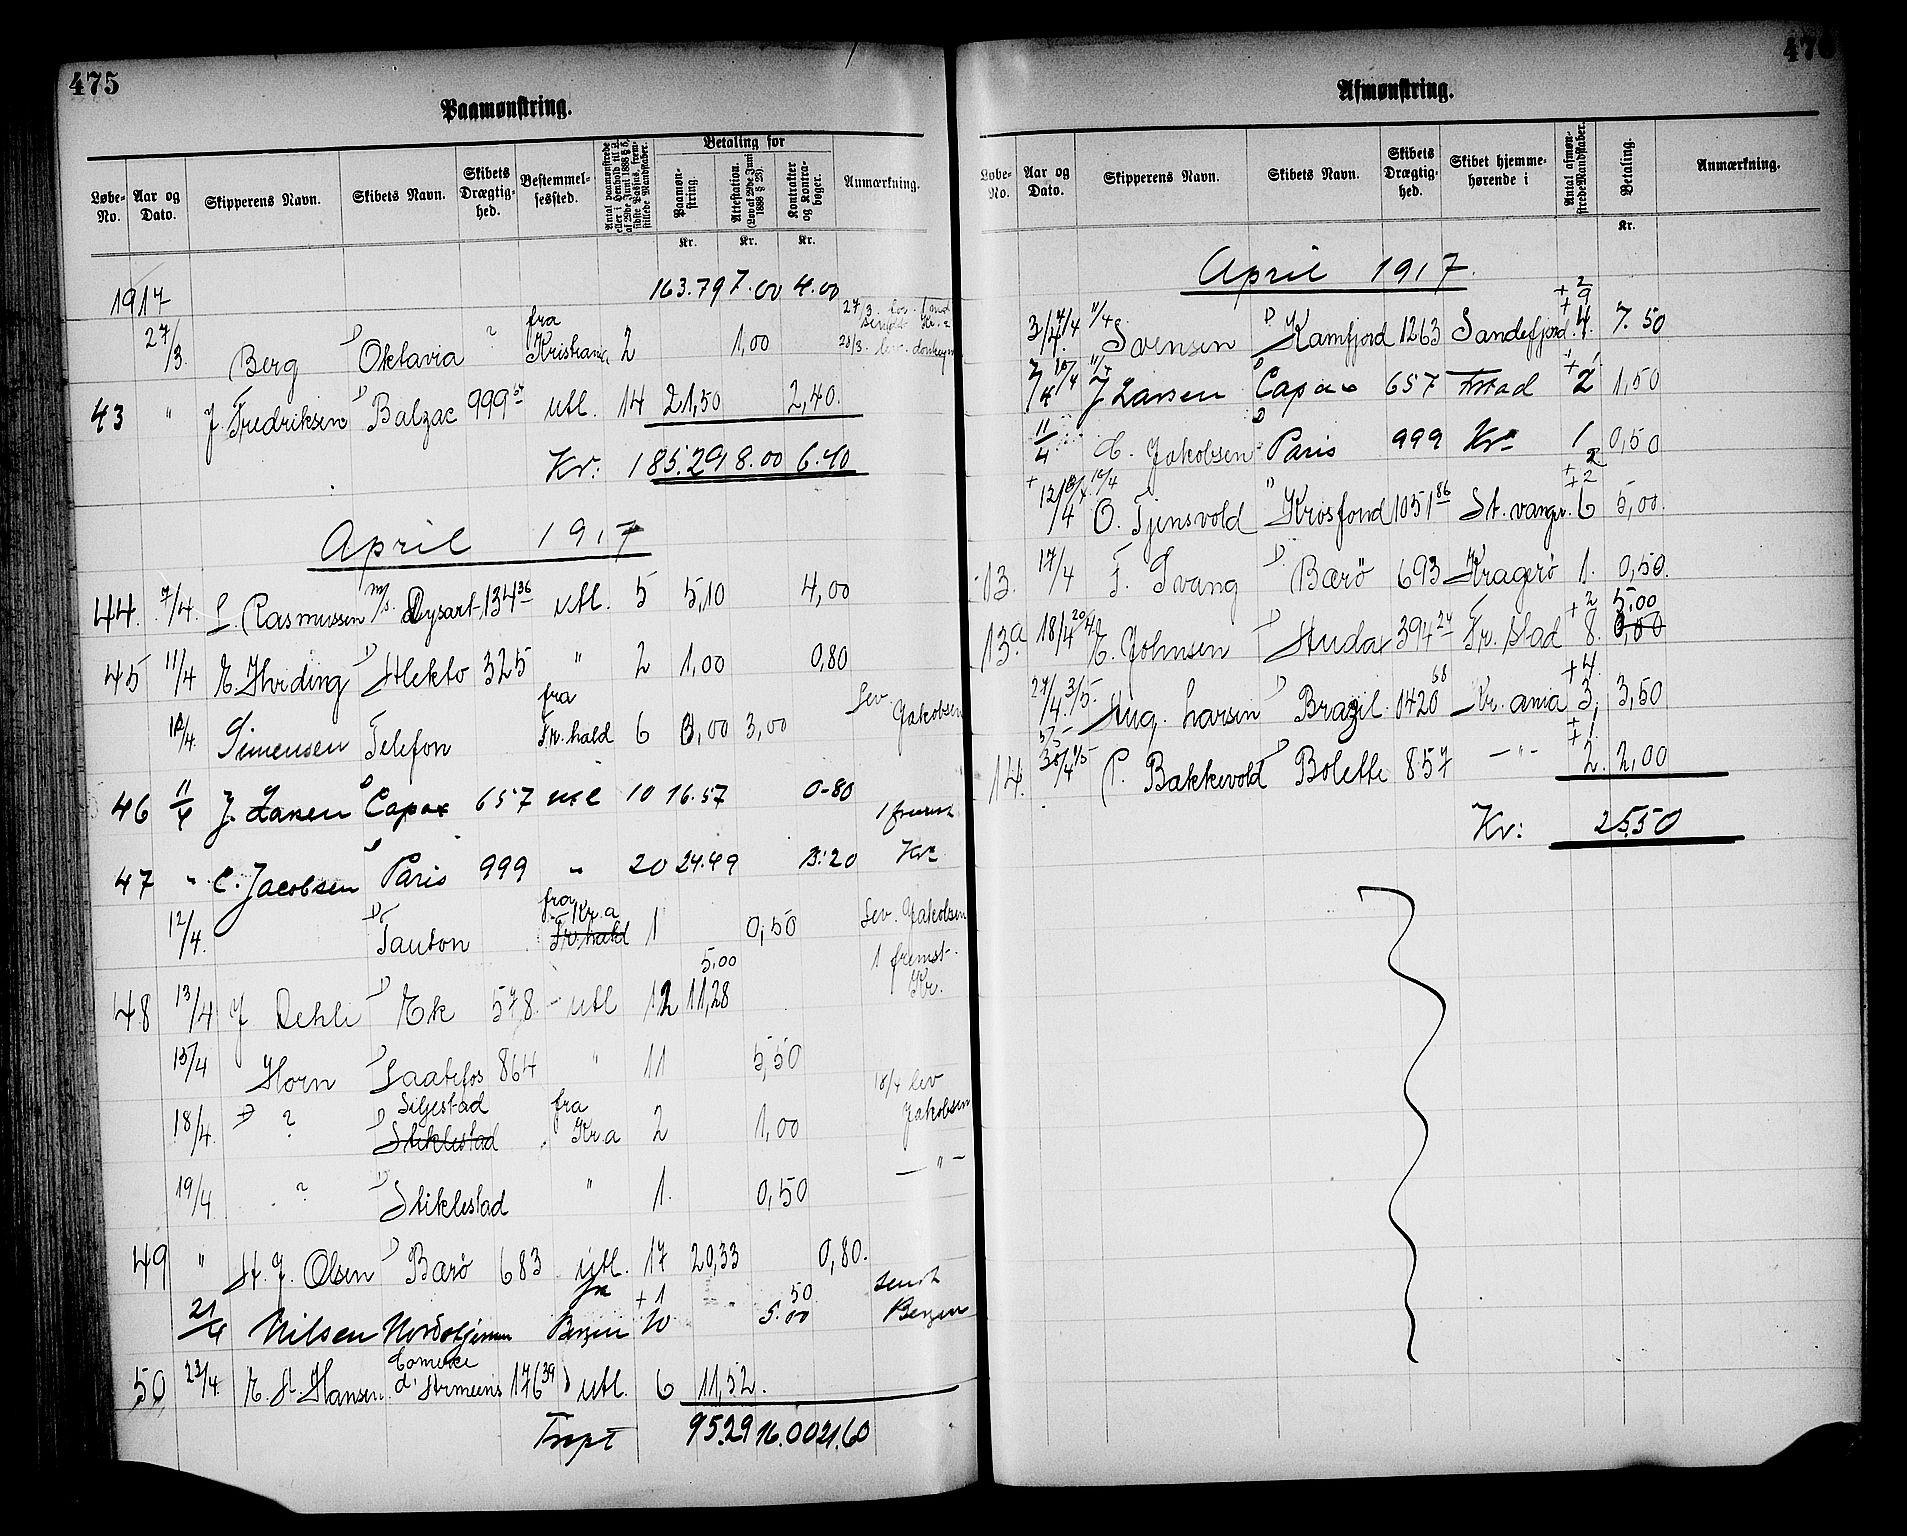 475
Paamønstring.
Løbe-No. Aar og Dato. Skipperens Navn. Skibets Navn. Skibets Drægtig-hed. Bestemmel-sessted. Betaling for Paamøn-string. Attestation. (Lov af 2de Juni 1888 § 23). Kontrakter og Kontra-bøger. Anmærkning.
Kr. Kr. Kr.
1917 163.79 7.00 4.00
27/3. Berg D Oktavia ? fra Kristiania 2 1,00
43 " J. Fredriksen D Balzac 999 utl. 14 21,50 2,40.
Kr: 185.29 8.00 6.40
April 1917
44. 7/4. L. Rasmussen m/s. Dysart 134 36 utl. 5 5,10 4,00
45 11/4 E. Hviding D Alekto 325 " 2 1,00 0,80
fra
10/4. Simensen Telefon Fr.hald 6 3,00 3,00 Lev. Jakobsen
46 11/4 J. Larsen D Capax 657 utl 10 16.57 0-80
47 " C. Jacobsen D Paris 999 " 20 24.49 3.20 Kr.
fra Kr.a
12/4. D Tauton Fr.hald 1 0,50 Lev. Jakobsen
5,00 1 fremst. Kr.
48 13/4 J Dehli D Ek 578. - utl 12 11,28
13/4 Horn D Laatefos 864 " 11 5,50
Siljestad fra 18/4 lev
18/4. ? D Stiklestad Kr.a 2 1,00 Jakobsen
19/4 ? D Stiklestad " 1. 0,50 — " —
49 " H. J. Olsen D Barø 683 utl. 17 20,33 0,80.
fra + 1 50 sendt
21/4 Nilsen Nordstjernen Bergen 10 5.00 Bergen
Comerce
50 23/4. E. H. Hansen d'Armeens 176 39 utl. 6 11,52.
Trspt 95.29 16.00 21.60
Afmønstring.
Løbe-No. Aar og Dato. Skipperens Navn. Skibets Navn. Skibets Drægtig-hed. Skibet hjemme-hørende i Antal afmøn-strede Mandskaber. Betaling. Anmærkning.
Kr.
April 1917.
3/4. 4/4 11/4 Svensen D Kamfjord 1263 Sandefjord. 4. 7.50
J Larsen D Capax 657 Frstad 2 1,50
11/4 C. Jakobsen D Paris 999 Kra 1 0,50
12/4 16/4 O. Tjensvold D Krosfond 1051 86 St.vanger. 6 5,00.
13. 17/4 T. Svang D Barø 693 Kragerø 1. 0,50.
5.00
13a 18/4 20/4 E. Johnsen D Huda 394 24 Fr.stad 8. 0,00
27/4. 3/5. Aug. Larsen D Brazil 1420 58 Kr.ania 3, 3,50
14. 30/4 P. Bakkevold D Bolette 857 — " — 2. 2,00
Kr: 25.50